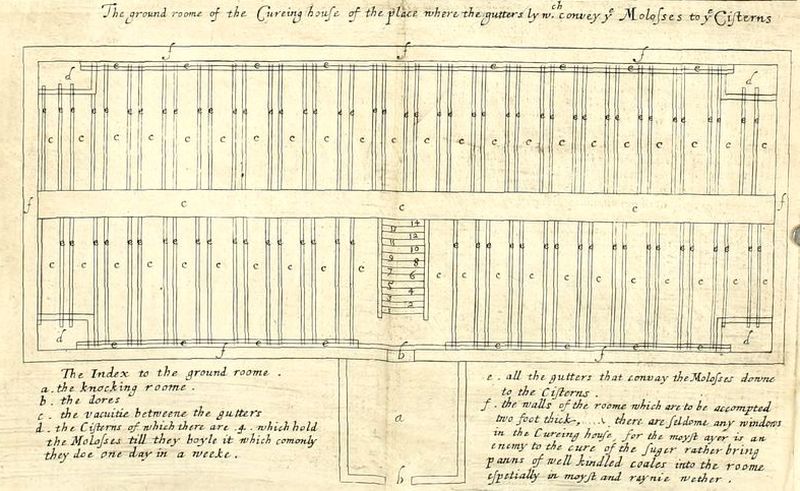 The ground roome of the Cureing house of the place where the gutters ly wch convey ye Molosses to ye Cisterns
f f f
d d
e e e e e e
e e e e e e e e e e e e e e e e e e e e e e
c c c c c c c c c c c c c c c c c c c c c c c c
f c c c f
14
13
12
11
10
9
8
7
6
5
4
3
2
1
e e e e e e e e e e e e e e e e e e e e
c c c c c c c c c c c c c c c c c c c c c c
d d
e e e e
f b f
The Index to the ground roome .
a. the knocking roome .
b. the dores
c . the vacuitie betweene the gutters
d . the Cisterns of which there are .4. which hold
the Molosses till they boyle it which comonly
they doe one day in a weeke .
a
b
e . all the gutters that convay the Molosses downe
to the Cisterns .
f . the walls of the roome which are to be accompted
two foot thick there are seldome any windows
in the Cureing house, for the moyst ayer is an
enemy to the cure of the suger rather bring
panns of well kindled coales into the roome
espetially in moyst and raynie wether .